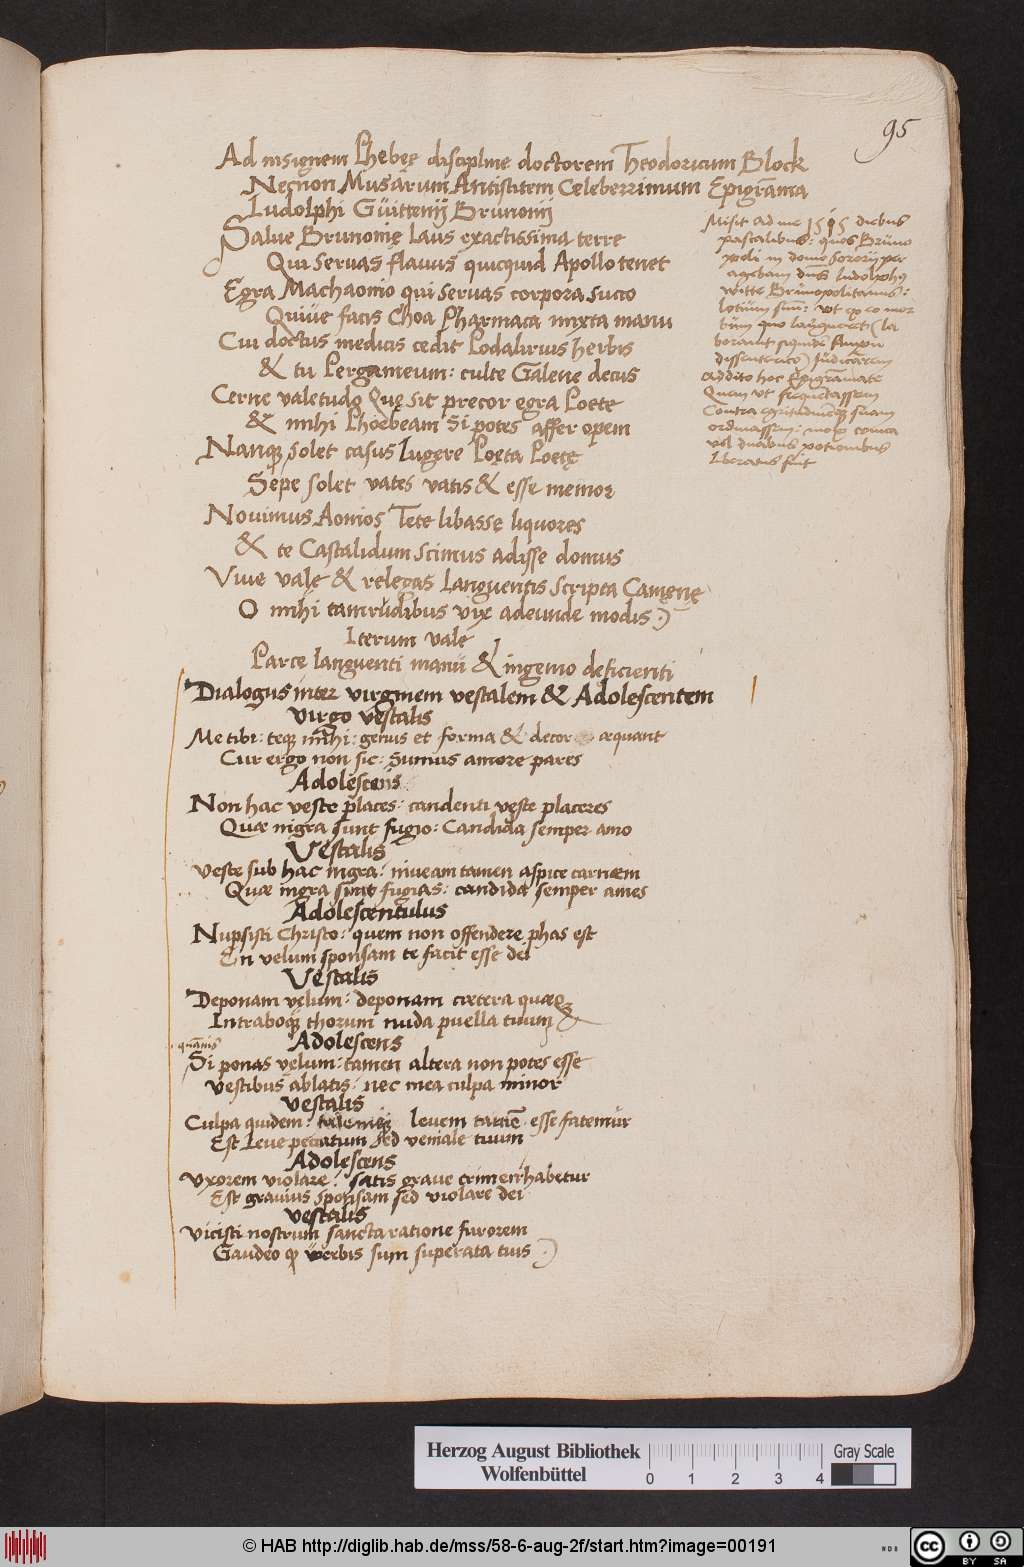 95
Ad insignem Phębeę discipline doctorem Theodoricum Block
Necnon Musarum Antistitem Celeberrimum Epigrāma
Ludolphi Güittenij Brunonij
Salue Brunonię laus exactissima terre
Qui seruas flauus quicquid Apollo tenet
Egra Machaonio qui seruas corpora succo
Quiue facis Choa Pharmaca mixta manu
Cui doctus medicis cedit Podalirius herbis
& tu Pergameum: culte Galene decus
Cerne valetudo Quę sit precor egra Poete
& mihi Phoebeam si potes affer opem
Nanque solet casus lugere Poęta Poetę
Sepe solet vates vatis & esse memor
Nouimus Aonios Te te libasse liquores
& te Castalidum scimus adisse domus
Viue vale & relegas languentis scripta Camęnę
O mihi tam rudibus vix adeunde modis
Iterum vale
Parce languenti manü & ingenio deficienti
Misit ad me 1515 diebus
pascalibus: quos Brüno
poli in domo sororij per
agebam dns ludolphus
witte Brünopolitanus:
lotium suū: vt ex eo mor
būm quo laūgueret (la
borauit siquidē
dissenterico) Judicarem
addito hoc Epigrāmate
Quem vt
Contra egritudinem suam
ordinassem: mox
vel duabus potionibus
liberatus fuit
Dialogus inter virginem vestalem & Adolescentem
Virgo vestalis
Me tibi: teque mihi: genus et forma & decor æquant
Cur ergo non sic: Sumus amore pares
Adolescens
Non hac veste places: candenti veste placeres
Quæ nigra sunt fugio: Candida semper amo
Vestalis
Veste sub hac nigra: niueam tamen aspice carnem
Quæ nigra sunt fugias: candida semper ames
Adolescentulus
Nupsisti Christo: quem non offendere phas est
En velum sponsam te facit esse dei
Vestalis
Deponam velum: deponam cætera quæque
Intraboque thorum nuda puella tuum
Adolescens
quāuis
Si ponas velum: tamen altera non potes esse
Vestibus ablatis: nec mea culpa minor
Vestalis
Culpa quidem: leuem tamē esse fatemur
Est Leue peccatum sed veniale tuum
Adolescens
Vxorem violare: satis graue crimen habetur
Est grauius sponsam sed violare dei
Vestalis
Vicisti nostrum sancta ratione furorem
Gaudeo quod verbis sum superata tuis
Herzog August Bibliothek
Wolfenbüttel
0 1 2 3 4
Gray Scale
© HAB http://diglib.hab.de/mss/58-6-aug-2f/start.htm?image=00191
cc BY SA